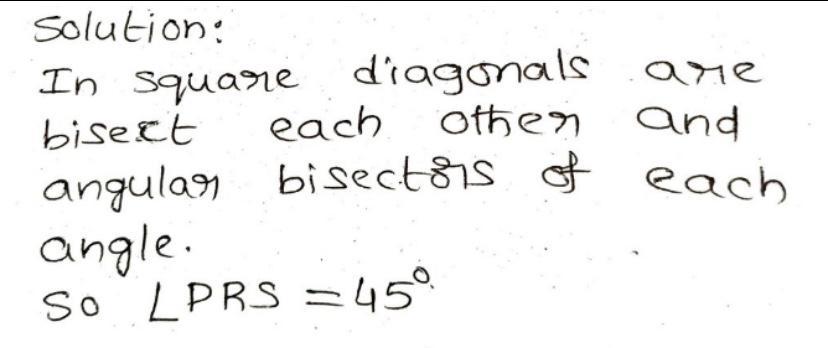 Solution:
In square diagonals are
bisect each other and
angular bisectors of each
angle.
So ∠PRS = 45°